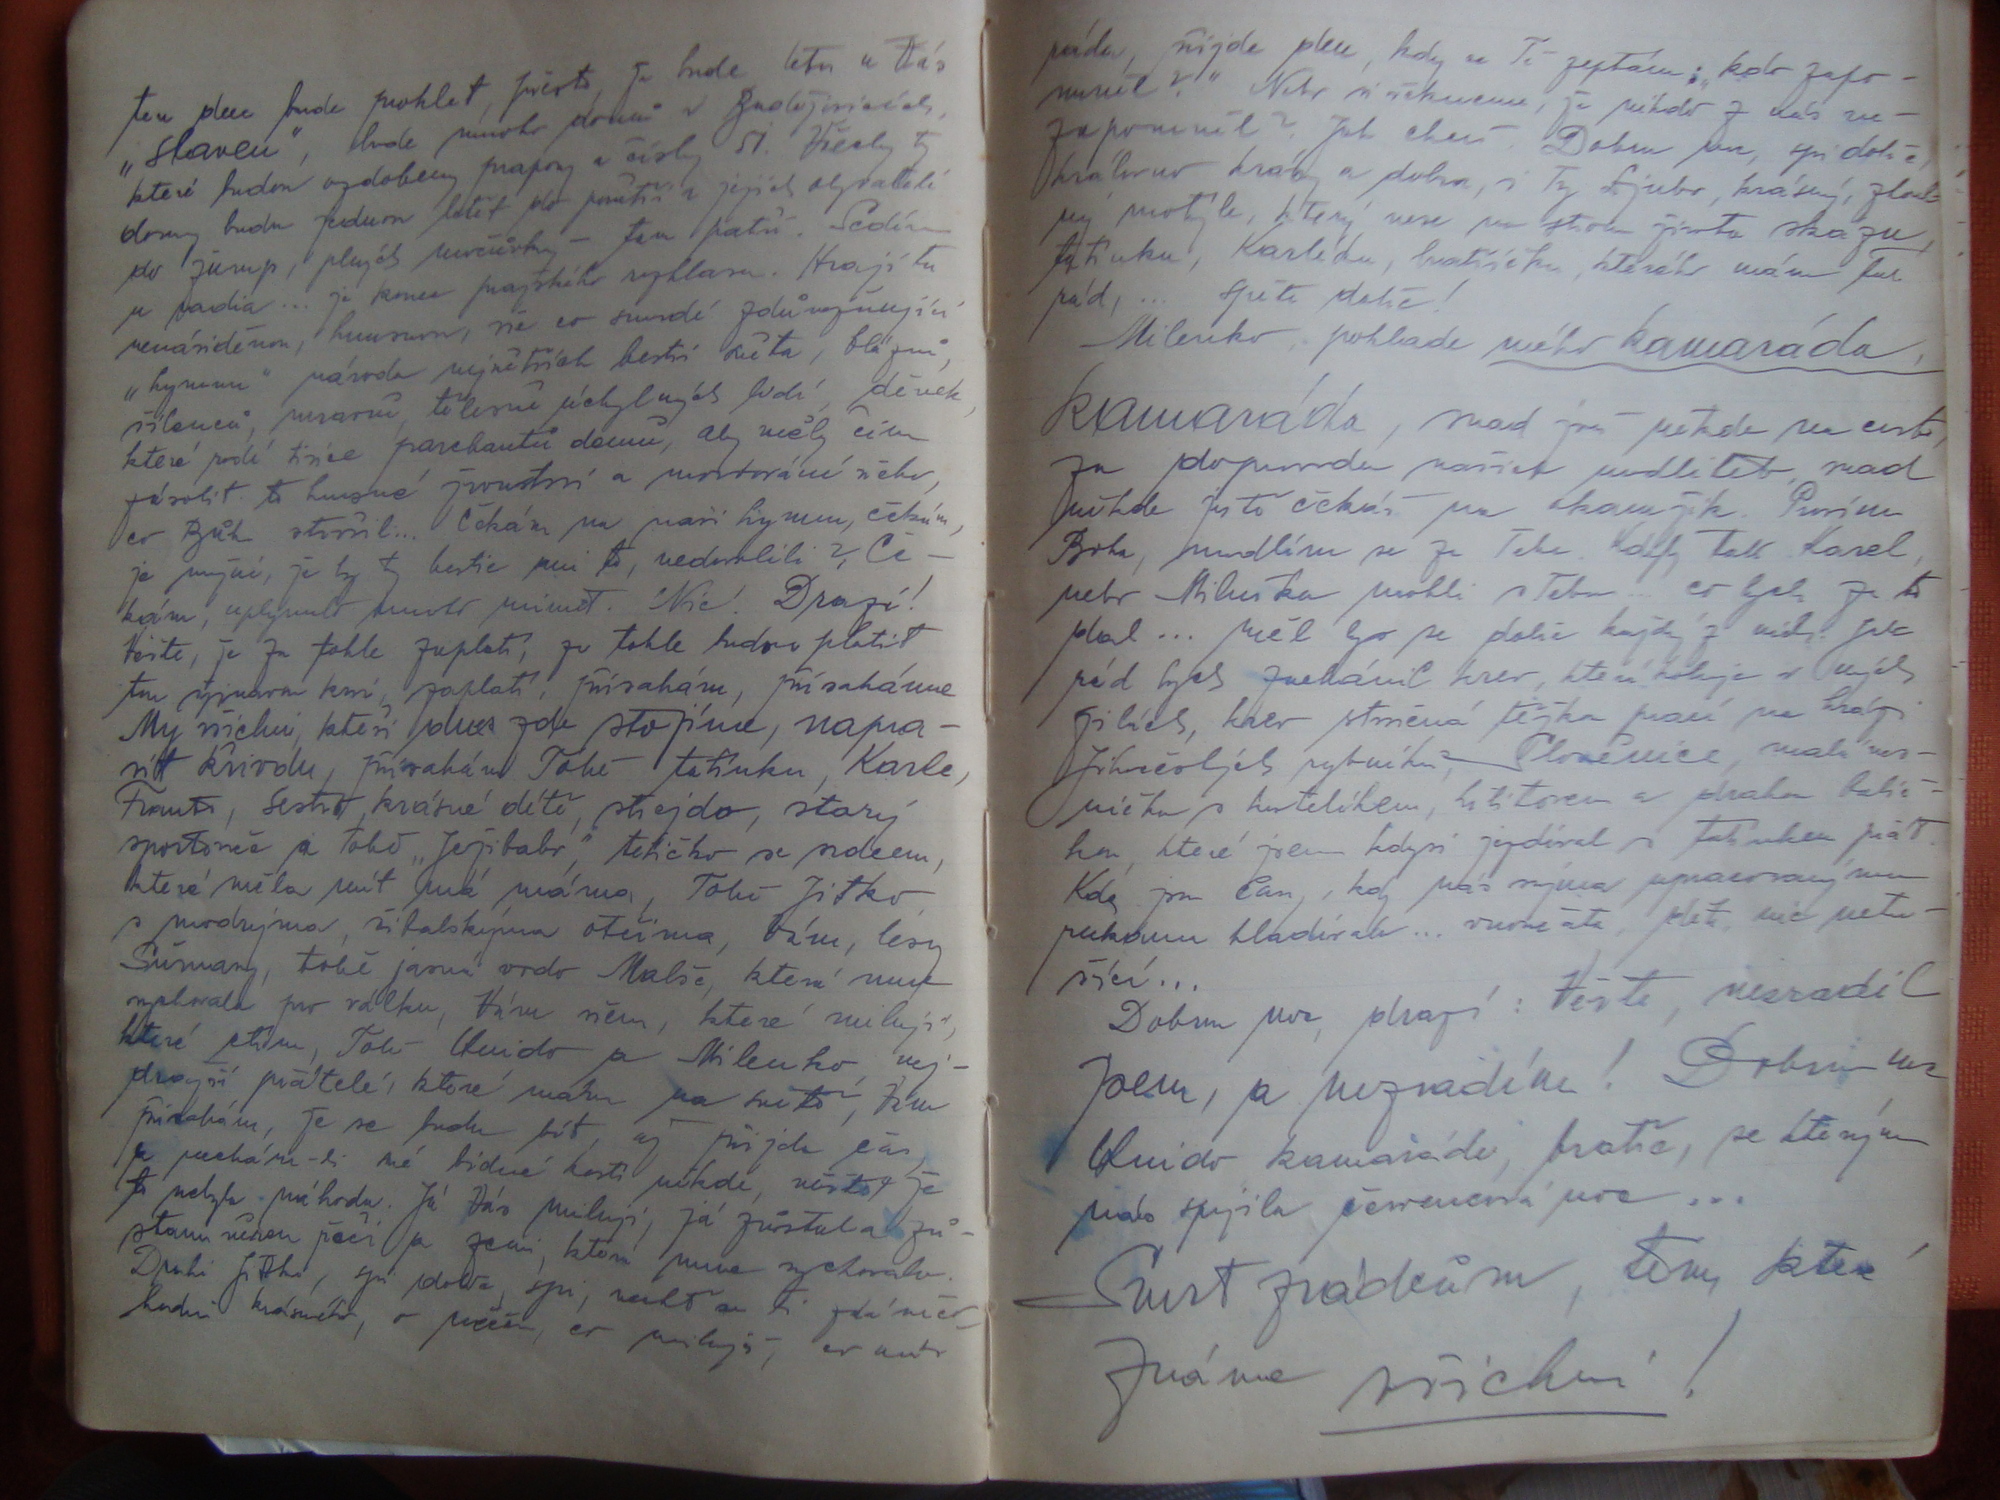 ten den bude proklet, přesto, že bude letos u Vás
„slaven“, bude mnoho domů v Budějovicích,
které budou ozdobeny prapory a čísly 51. Všechny ty
domy budou jednou letět do povětří a jejich obyvatelé
do žump, plných močůvky – tam patří. Sedím
u radia... je konec pražského rozhlasu. Hrají tu
nenáviděnou, hnusnou, vše co smrdí zdůrazňující
„hymnu“ národa největších bestií světa, bláznů,
šílenců, mravně, tělesně úchylných lidí, děvek,
které rodí tisíce parchantů domů, aby měly čím
zásobit to hnusné žroutství a mordování všeho,
co Bůh stvořil... Čekám na naši hymnu, čekám,
je možné, že by ty bestie mi to nedovolili?, Če–
kám, uplynulo mnoho minut. Nic! Drazí!
Věřte, že za tohle zaplatí, za tohle budou platit
tou špinavou krví, zaplatí, přísahám, přísaháme
My všichni, kteří dnes zde stojíme, napra–
vit křivdu, přísahám Tobě tatínku, Karle,
Franto, sestro, krásné dítě, strejdo, starý
sportovče a tobě „Ježibabo,“ tetičko se srdcem,
které měla mít má máma, Tobě Jitko
s modrýma, šibalskýma očima, Vám, lesy
Šumavy, tobě jasná vodo Malše, která mne
vychovala pro válku, Vám všem, které miluji,
které ctím, Tobě Quido a Milenko, nej–
dražší přátelé, které mám na světě, Vám
přísahám, že se budu bít, až přijde čas,
a nechám-li své bídné kosti někde, věřte, že
to nebyla náhoda. Já Vás miluji, já zůstal a zů–
stanu věren řeči a zemi, která mne vychovala.
Drahá Jitko, spi dobře, spi, nechť se ti zdá něco
hodně krásného, o něčem, co miluješ, co máš
ráda, přijde den, kdy se Tě zeptám: „kdo zapo–
mněl?“ Nebo si řekneme, že nikdo z nás ne–
zapomněl? Jak chceš. Dobrou noc, spi dobře,
královno krásy a dobra, i Ty Ljubo, krásný, zlat–
ný motýle, který nese na stole života zkázu,
tatínku, Karlíčku, bratříčku, kterého mám tak
rád, ... spěte dobře!
Milenko, pohlaď mého kamaráda,
kamaráda, snad jsi někde na cestě,
za doprovodu našich modliteb, snad
někde ještě čekáš na okamžik. Prosím
Boha, modlím se za Tebe. Kdyby tak Karel,
nebo Miluška mohli s Tebou... co bych za to
dal ... měl by se dobře každý z nich. Jak
rád bych zachránil krev, která koluje v mých
žilách, krev stvořená těžkou prací na hrázi
Jihočeských rybníků, Ploučnice, malá ves–
nička s kostelíkem, hřbitovem a drahou babič–
kou, které jsem kdysi jezdíval s tatínkem přát.
Kde jsou časy, kdy nás svýma upracovanýma
rukama hladívala... vnoučata, děti, nic netu–
šící...
Dobrou noc, drazí: Věřte, nezradil
jsem, a nezradím! Dobrou noc
Quido kamaráde, bratře, se kterým
nás spojila červencová noc ...
Smrt zrádcům, těm, které
známe všichni!